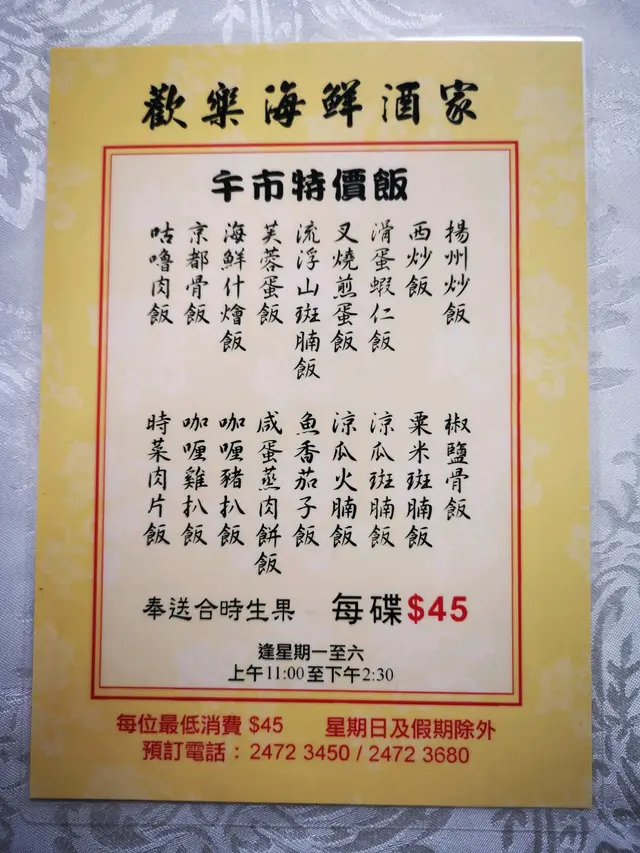 歡樂海鮮酒家
午市特價飯
揚州炒飯
西炒飯
滑蛋蝦仁飯
叉燒煎蛋飯
流浮山斑腩飯
芙蓉蛋飯
海鮮什燴飯
京都骨飯
咕嚕肉飯
椒鹽骨飯
粟米斑腩飯
涼瓜斑腩飯
涼瓜火腩飯
魚香茄子飯
咸蛋蒸肉餅飯
咖喱豬扒飯
咖喱雞扒飯
時菜肉片飯
奉送合時生果 每碟$45
逢星期一至六
上午11:00至下午2:30
每位最低消費 $45 星期日及假期除外
預訂電話：2472 3450 / 2472 3680